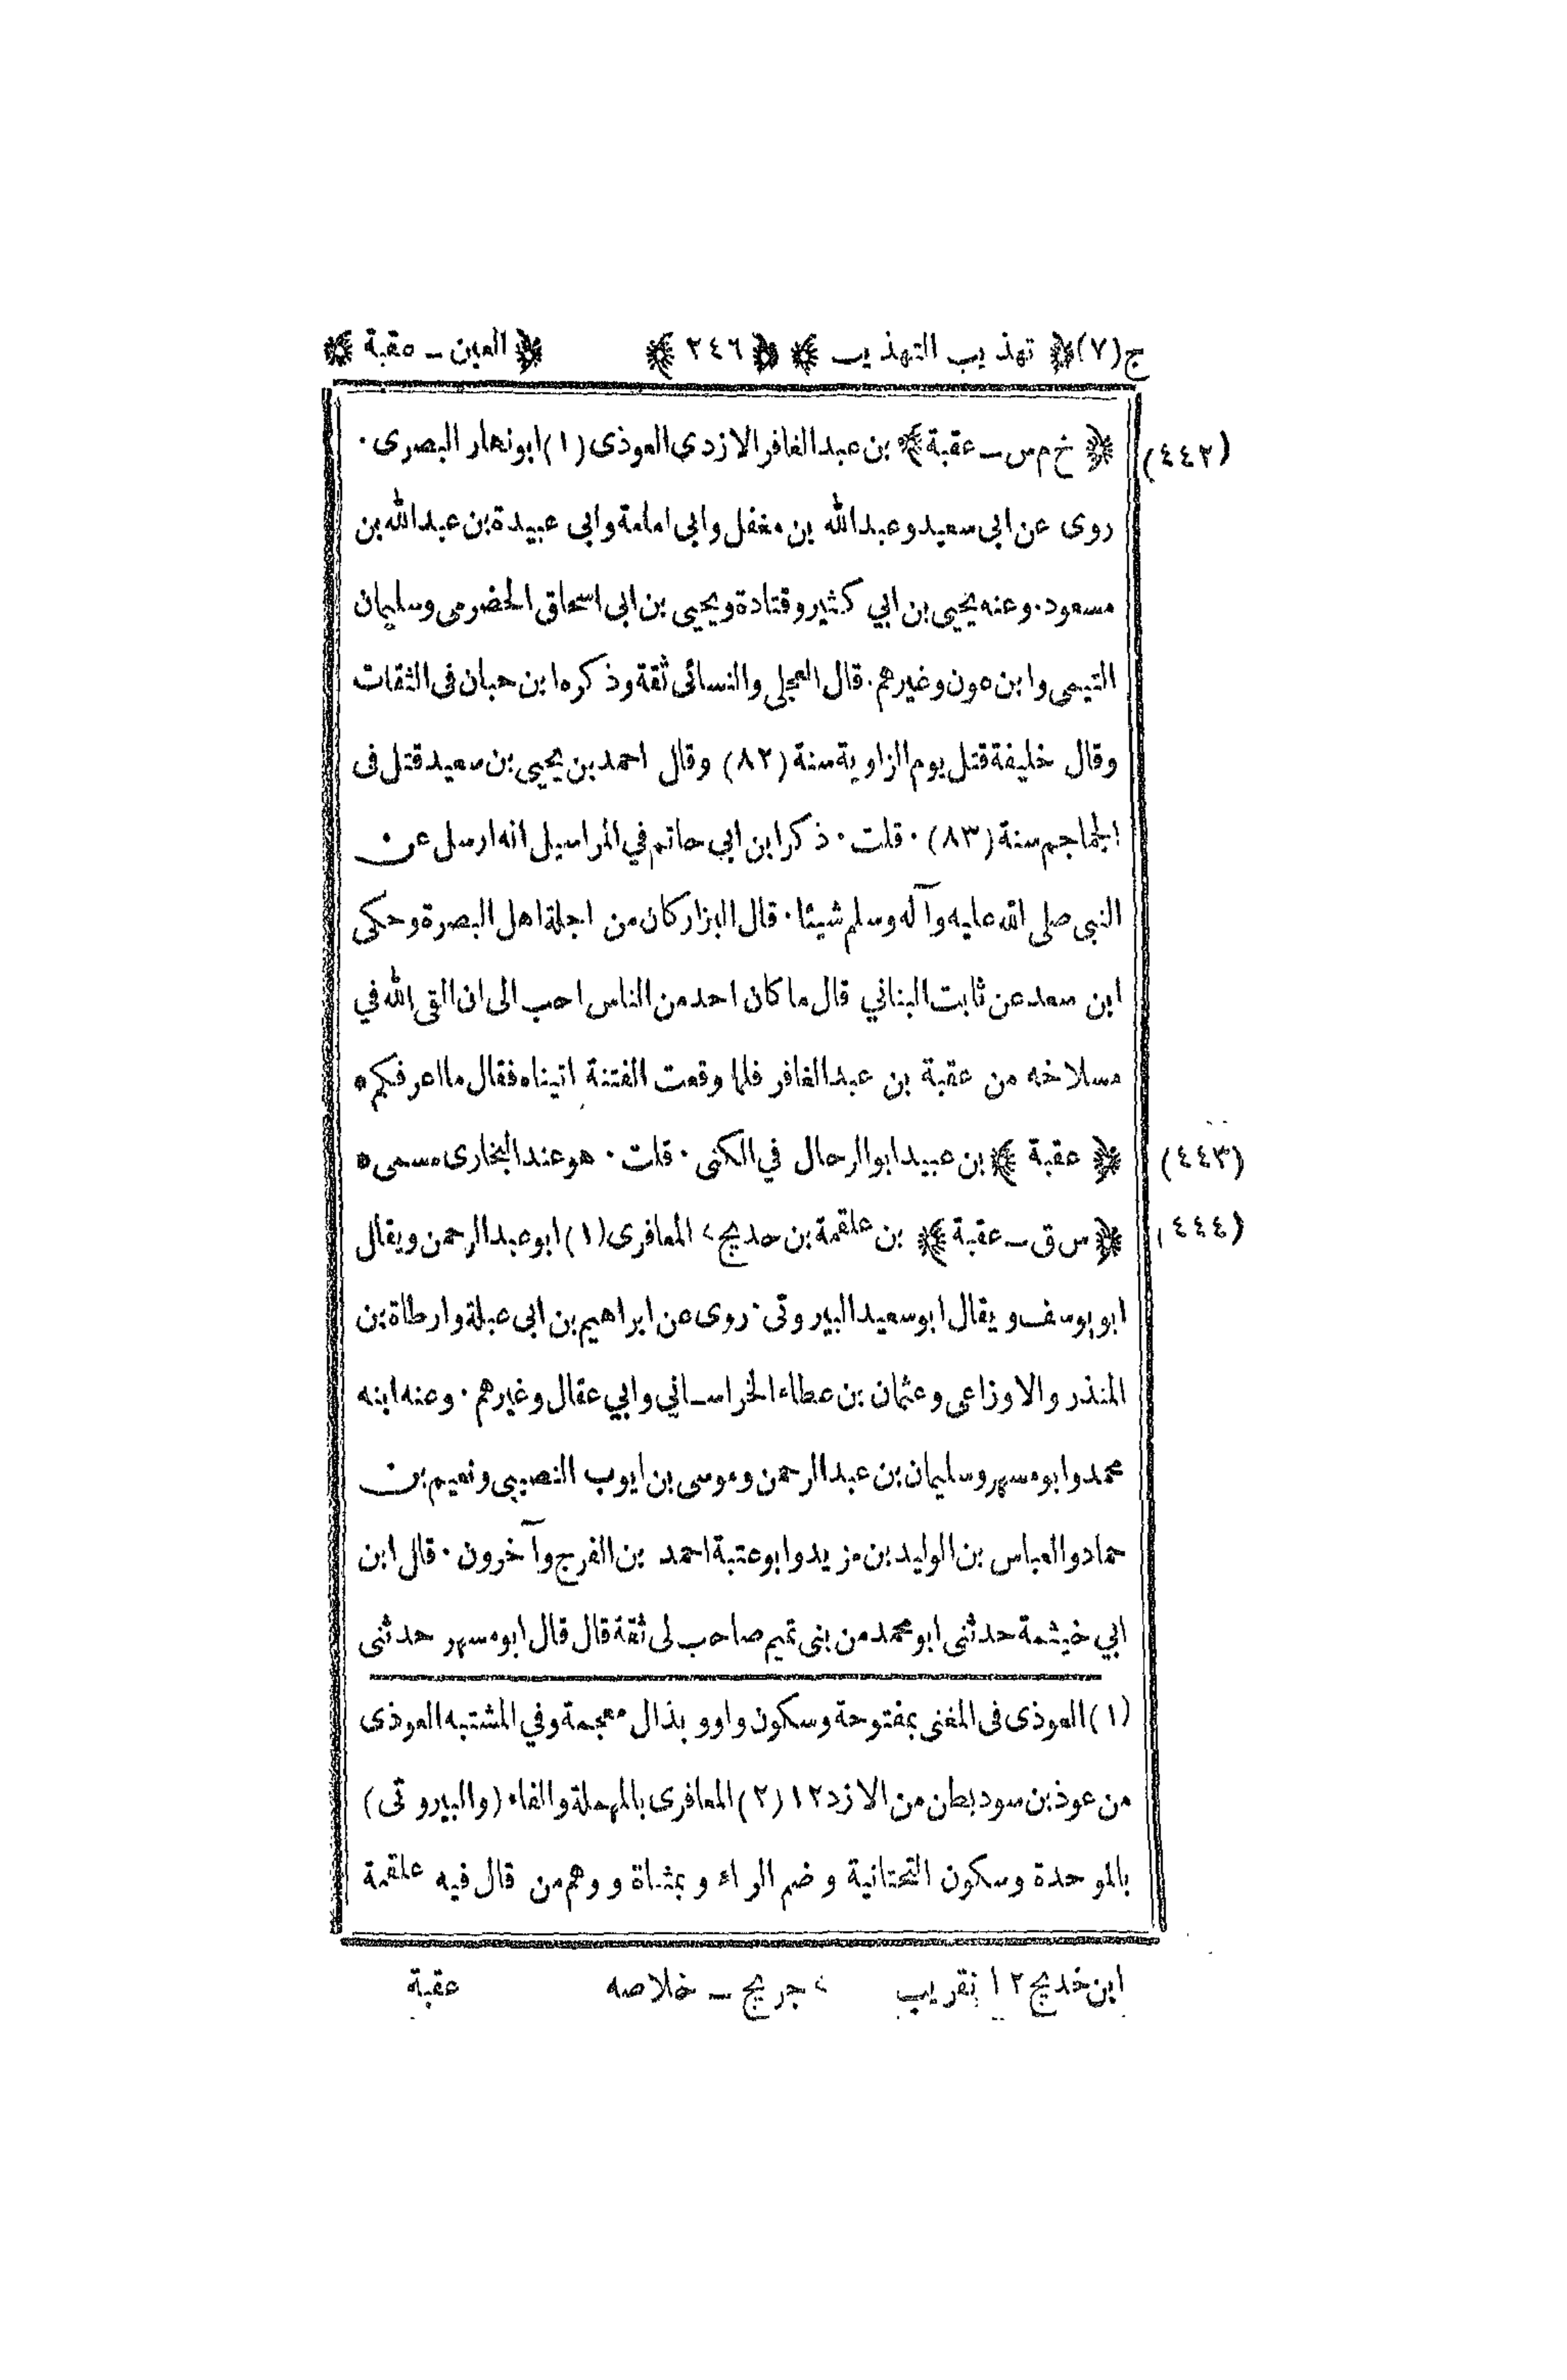 ج(٧) ﴿ تهذيب التهذيب ﴾ ﴿ ٢٤٦ ﴾ ﴿ العين ـ عقبة ﴾
(٤٤٢) ﴿ خ م س ـ عقبة ﴾ بن عبدالغافر الازدي العوذى (١) ابونهار البصرى ٠
روى عن ابى سعيد وعبدالله بن مغفل وابى امامة وابى عبيدة بن عبدالله بن
مسعود ٠ وعنه يحيى بن ابي كثير وقتادة ويحيى بن ابى اسحاق الحضرمى وسليمان
التيمى وابن عون وغيرهم ٠ قال العجلى والنسائى ثقة وذكره ابن حبان فى الثقات
وقال خليفة قتل يوم الزاوية سنة (٨٢) وقال احمد بن يحيى بن سعيد قتل فى
الجماجم سنة (٨٣) ٠ قلت ٠ ذكر ابن ابي حاتم في المراسيل انه ارسل عن
النبى صلى الله عليه وآله وسلم شيئا ٠ قال البزار كان من اجلة اهل البصرة وحكى
ابن سعد عن ثابت البناني قال ما كان احد من الناس احب الى ان القى الله في
مسلاخه من عقبة بن عبدالغافر فلما وقعت الفتنة اتيناه فقال ما اعرفكم *
(٤٤٣) ﴿ عقبة ﴾ بن عبيد ابوالرحال في الكنى ٠ قلت ٠ هو عند البخارى مسمى *
(٤٤٤) ﴿ س ق ـ عقبة ﴾ بن علقمة بن حديج › المعافرى (١) ابوعبدالرحمن ويقال
ابو يوسف ويقال ابوسعيد البيروتى ٠ روى عن ابراهيم بن ابى عبلة وارطاة بن
المنذر والاوزاعى وعثمان بن عطاء الخراساني وابي عقال وغيرهم ٠ وعنه ابنه
محمد وابومسهر وسليمان بن عبدالرحمن وموسى بن ايوب النصيبى ونعيم بن
حماد والعباس بن الوليد بن مزيد وابوعتبة احمد بن الفرج وآخرون ٠ قال ابن
ابي خيثمة حدثنى ابومحمد من بنى تميم صاحب لى ثقة قال قال ابومسهر حدثنى
(١) العوذى فى المغنى بمفتوحة وسكون واو وبذال معجمة وفي المشتبه العوذى
من عوذ بن سود بطن من الازد ١٢ (٢) المعافرى بالمهملة والفاء (والبيروتى)
بالموحدة وسكون التحتانية وضم الراء وبمثناة ووهم من قال فيه علقمة
ابن خديج ١٢ تقريب › جريج ـ خلاصه عقبة